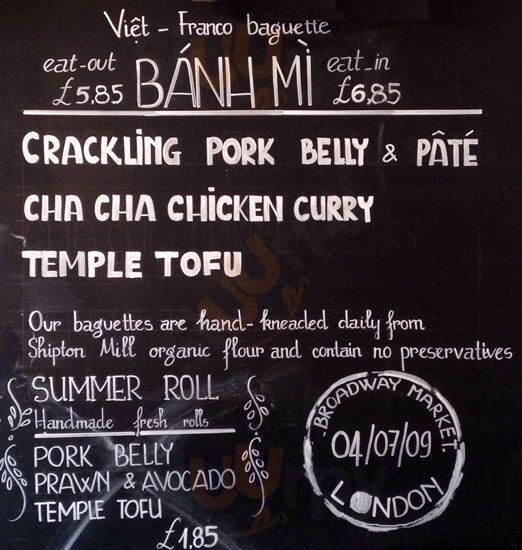 Việt - Franco baguette
eat-out BÁNH MÌ eat-in
£5,85 £6,85
CRACKLING PORK BELLY & PÂTÉ
CHA CHA CHICKEN CURRY
TEMPLE TOFU
Our baguettes are hand-kneaded daily from
Shipton Mill organic flour and contain no preservatives
SUMMER ROLL
Handmade fresh rolls
PORK BELLY
PRAWN & AVOCADO
TEMPLE TOFU
£1,85
BROADWAY MARKET
04/07/09
LONDON